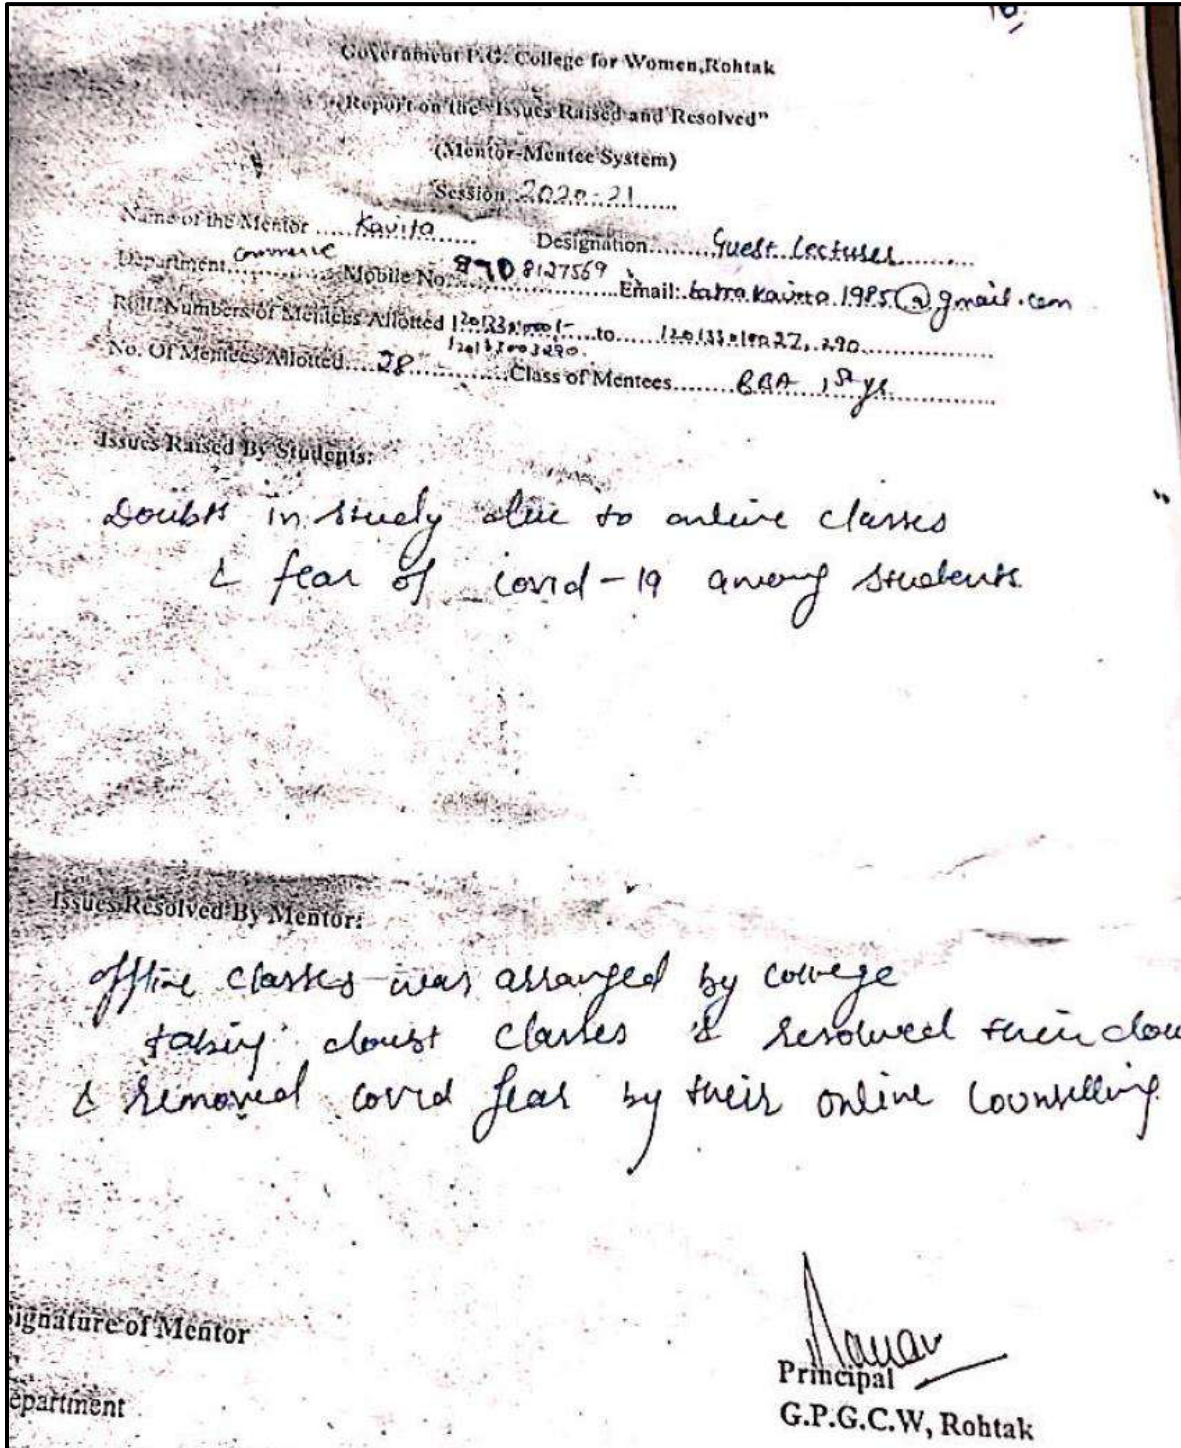 Government P.G. College for Women,Rohtak
"Report on the "Issues Raised and Resolved"
(Mentor-Mentee System)
Session 2020-21
Name of the Mentor Kavita Designation Guest Lecturer
Department Commerce Mobile No. 8127569 Email: kavita 1985@gmail.com
Roll Numbers of Mentees Allotted to
No. Of Mentees Allotted 28 Class of Mentees BBA 1st yr
Issues Raised By Students:
Doubts in study due to online classes
& fear of covid-19 among students
Issues Resolved By Mentor:
offline classes was arranged by college
taking doubt classes & resolved their dou
& removed covid fear by their online counselling
ignature of Mentor
epartment
Principal
G.P.G.C.W, Rohtak